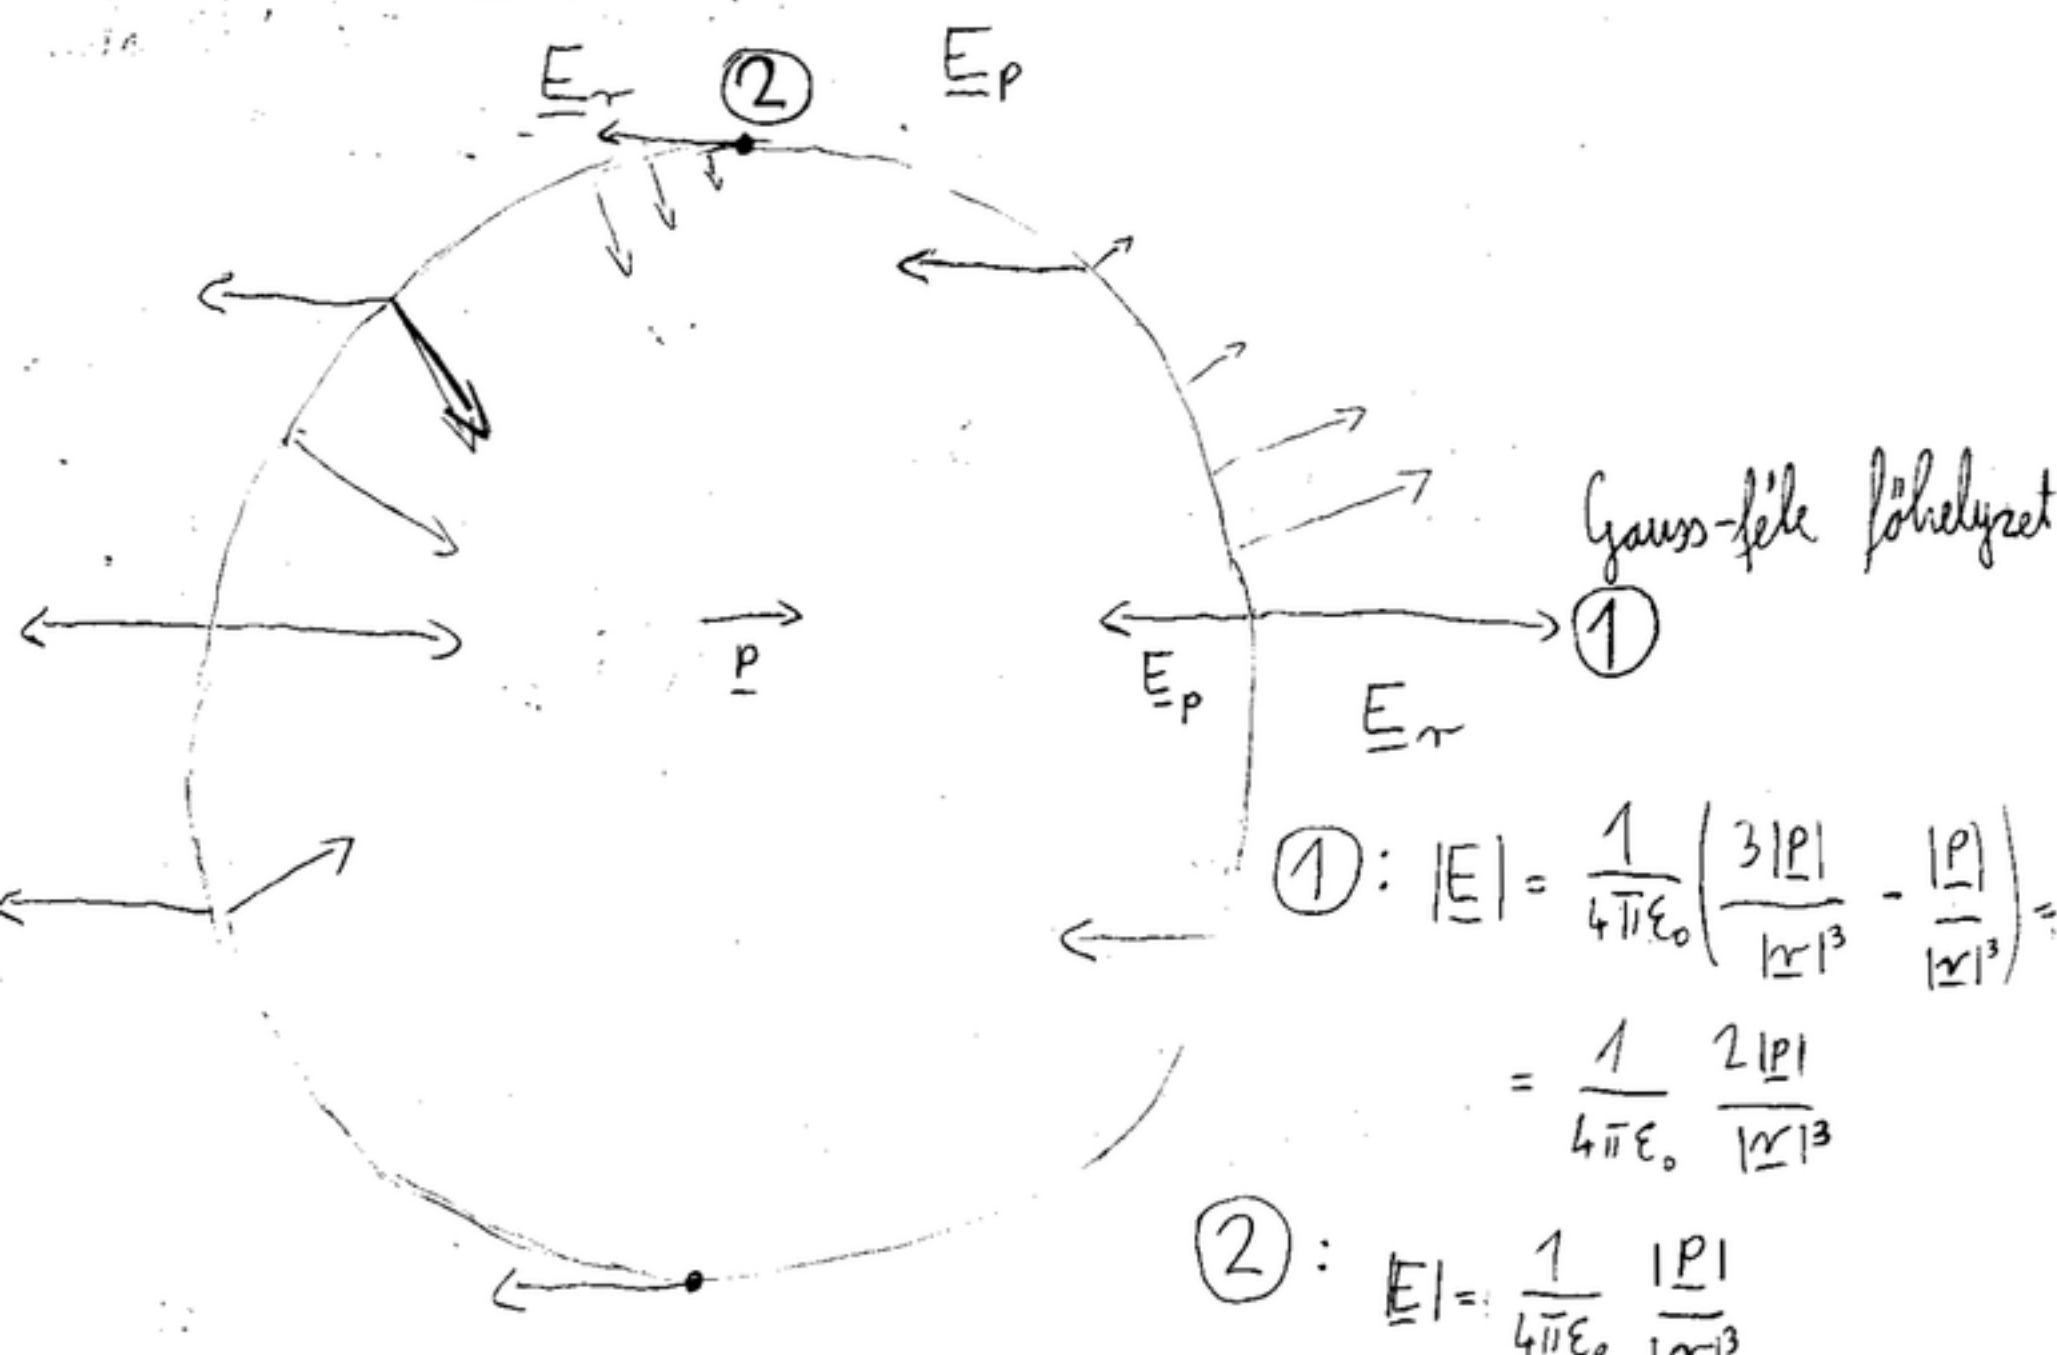 E_r ② E_p
Gauss-féle főhelyzet
①
p
E_p
E_r
①: |E| = 1/(4πε₀) (3|p|/|r|³ - |p|/|r|³) =
= 1/(4πε₀) 2|p|/|r|³
②: |E| = 1/(4πε₀) |p|/|r|³